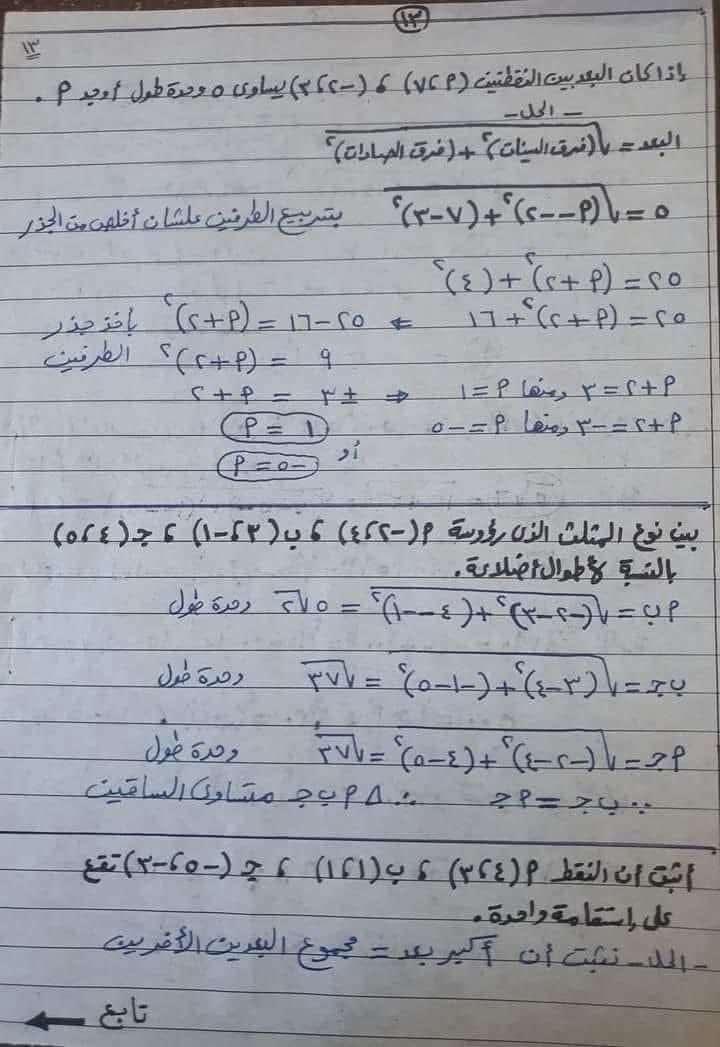 ١٣
١٣
إذا كان البعد بين النقطتين (٧،٩) ، (-٣،٢) يساوى ٥ وحدة طول أوجد ٩ .
- الحل -
البعد = √(فرق السينات)² + (فرق الصادات)²
٥ = √(٩--٢)² + (٧-٣)² بتربيع الطرفين علشان أخلص من الجذر
٢٥ = (٩+٢)² + (٤)²
٢٥ = (٩+٢)² + ١٦ ⇐ ٢٥-١٦ = (٩+٢)² بأخذ جذر
٩ = (٩+٢)² الطرفين
٩+٢=٣ ومنها ٩=١ ⇐ ±٣ = ٩+٢
٩+٢=-٣ ومنها ٩=-٥ ٩ = ١
أو
٩ = -٥
بين نوع المثلث الذى رؤوسة ٩(-٤،٢) ، ب(٣،-١) ، جـ(٥،٤)
بالنسبة لأطوال أضلاعة.
٩ب = √(-٢-٣)² + (٤--١)² = ٥√٢ وحدة طول
ب جـ = √(٣-٤)² + (-١-٥)² = √٣٧ وحدة طول
٩جـ = √(-٢-٤)² + (٤-٥)² = √٣٧ وحدة طول
∵ ب جـ = ٩جـ ∴ Δ ٩ ب جـ متساوى الساقين
أثبت أن النقط ٩(٣،٤) ، ب(١،١) ، جـ(-٥،-٣) تقع
على إستقامة واحدة.
- الحل - نثبت أن أكبر بعد = مجموع البعدين الأخريين
تابع ←